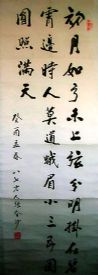 初月如弓未上弦分明掛在碧
霄邊時人莫道蛾眉小三五團
圓照滿天
癸酉春